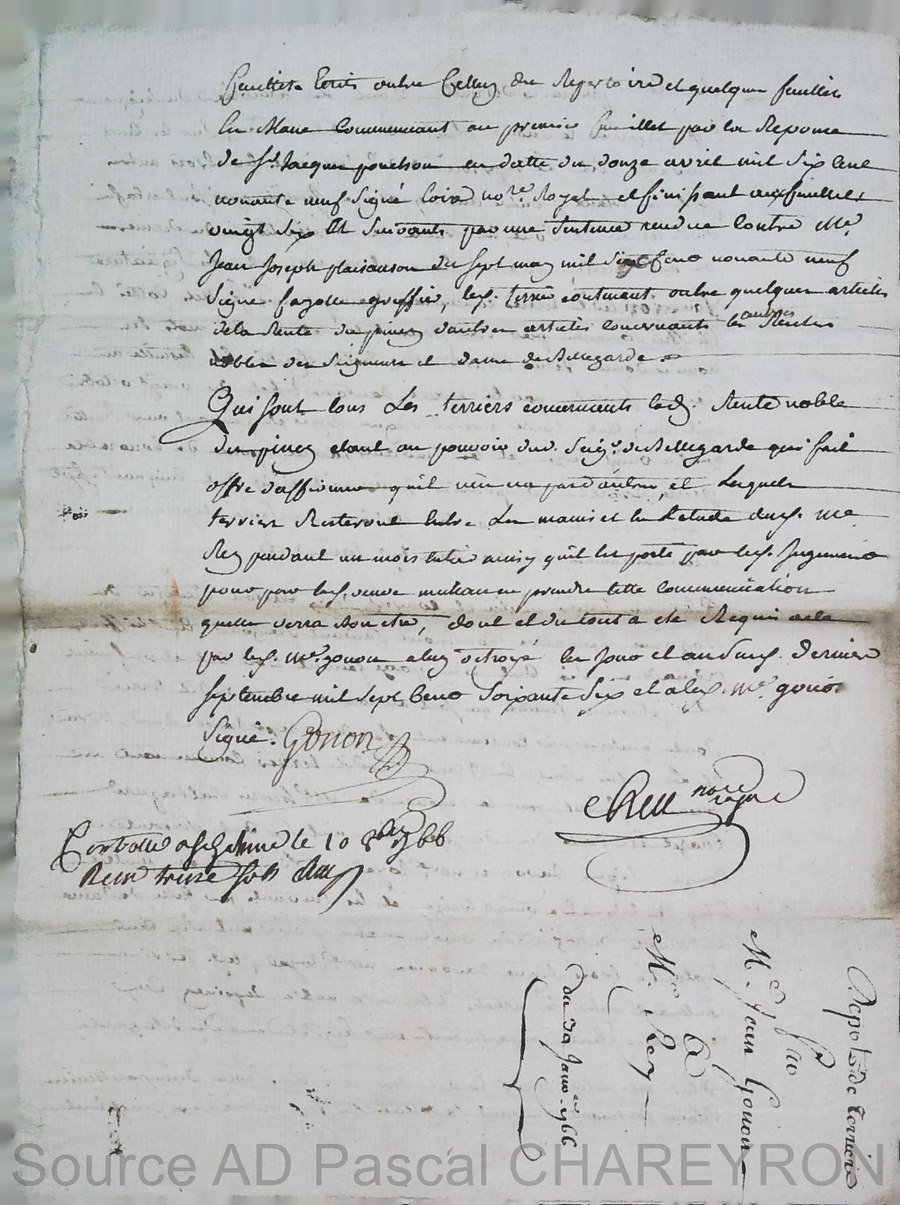 feuillets Ecrits outre Celluy du Repertoire et quelques feuillets
En blanc Commencant au premier feuillet par la Reponce
de Sr. Jacques ponchon en datte du douze avril mil six cent
nonante neuf signé Loire nore. Royal et finissant aux feuillets
vingt six Et suivants par une sentence rendue contre Me.
Jean Joseph plaisanson du sept may mil six cent nonante neuf
signé fayolle greffier, led. terrier contenant outre quelques articles
de la Rente du piney d'autres articles concernants les autres Rentes
nobles des seigneurs et dame de Bellegarde
Qui sont tous Les terriers concernents lad. Rente noble
du piney etant au pouvoir dud. Seigr. de Bellegarde qui fait
offre d'affirmer qu'il n'en a pas d'autres, et Lesquels
terriers Resteront Entre Les mains et En l'étude dud. Me
Rey pendant un mois Entier ainsy qu'il Est porté par led. Jugement
pour par lad. veuve prendre telle communication
quelle verra bon etre, dont et du tout a eté Requis acte
par led. Me. gonon a luy octroyé les jour et an susd. dernier
septembre mil sept Cent soixante six et a led. Me. gonon
signé. Gonon
Rey nore royal
Controllé a le 10 8bre 1766
Recu treize sols
Depot de terriers
par
Me Jean Gonon
a
Me Rey
du 30 1766
Source AD Pascal CHAREYRON